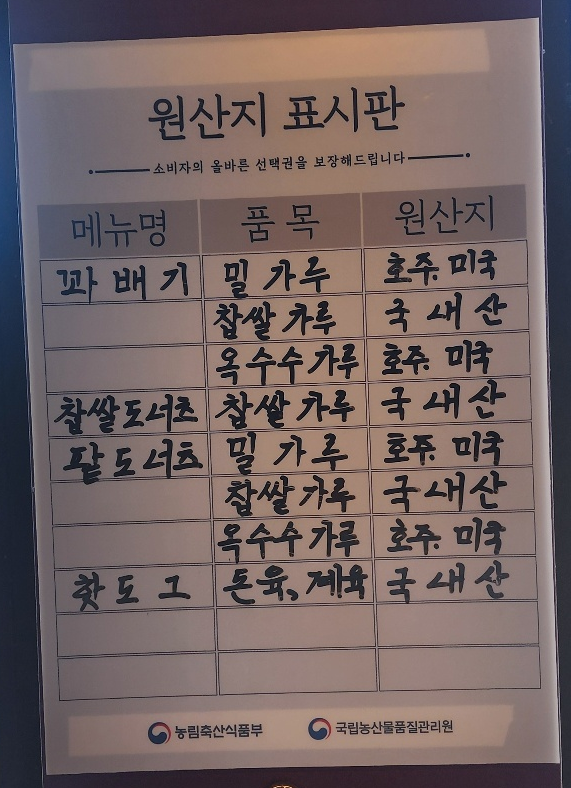 원산지 표시판
소비자의 올바른 선택권을 보장해드립니다
메뉴명 품목 원산지
꽈배기 밀가루 호주. 미국
찹쌀가루 국내산
옥수수가루 호주. 미국
찹쌀도너츠 찹쌀가루 국내산
팥도너츠 밀가루 호주. 미국
찹쌀가루 국내산
옥수수가루 호주. 미국
핫도그 돈육, 계육 국내산
농림축산식품부 국립농산물품질관리원